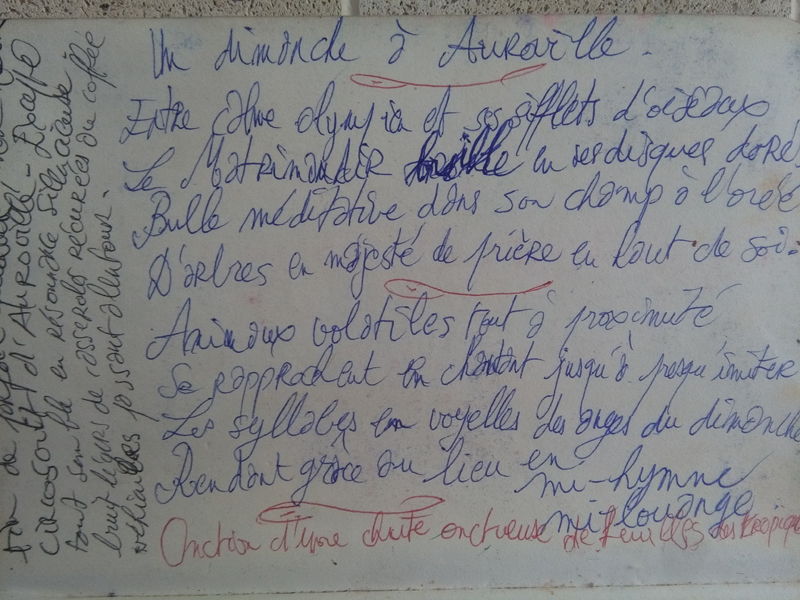 Un dimanche à Auroville.
Entre calme olympien et ses sifflets d'oiseaux
Le Matrimandir brille en ses disques dorés
Bulle méditative dans son champ à l'orée
D'arbres en majesté de prière en haut de soi.
Animaux volatiles tout à proximité
Se rapprochent en chantant jusqu'à presqu'imiter
Les syllabes en voyelles des anges du dimanche
Rendant grâce au lieu en
mi-hymne
mi-louange
Onction d'une chute onctueuse de feuilles des tropiques
d'Auroville - Excepté
tout semble en résonance silencieuse
bruit légers de casseroles récurées du coffée
véhicules passant alentour.